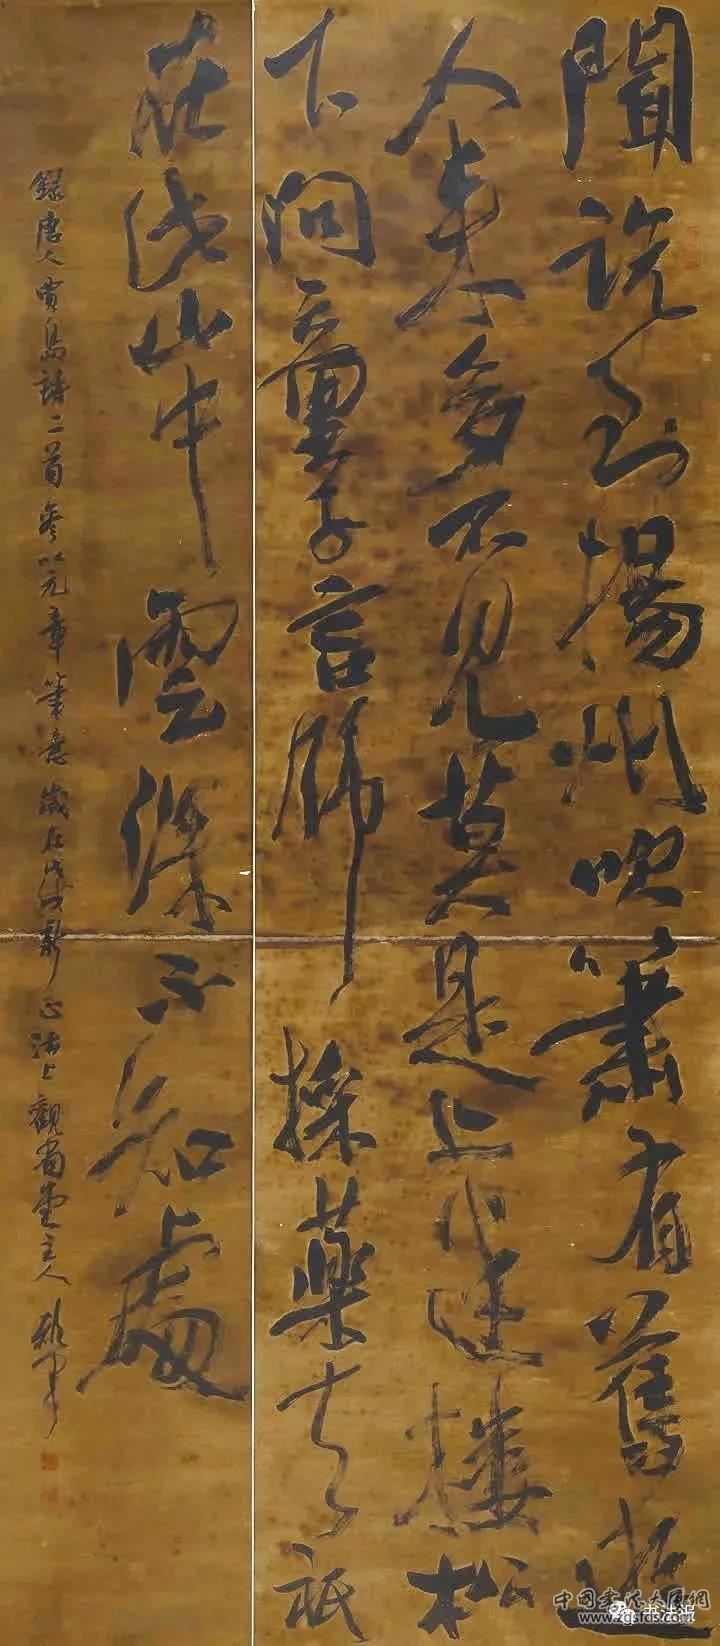 聞說到揚州吹簫有舊遊
人來多不見莫是上迷樓松
下問童子言師採藥去祇
在此山中雲深不知處
錄唐人賈島詩二首參以元章筆意歲在戊戌新正浦上觀堂主人
中國書法大廈網
书法报